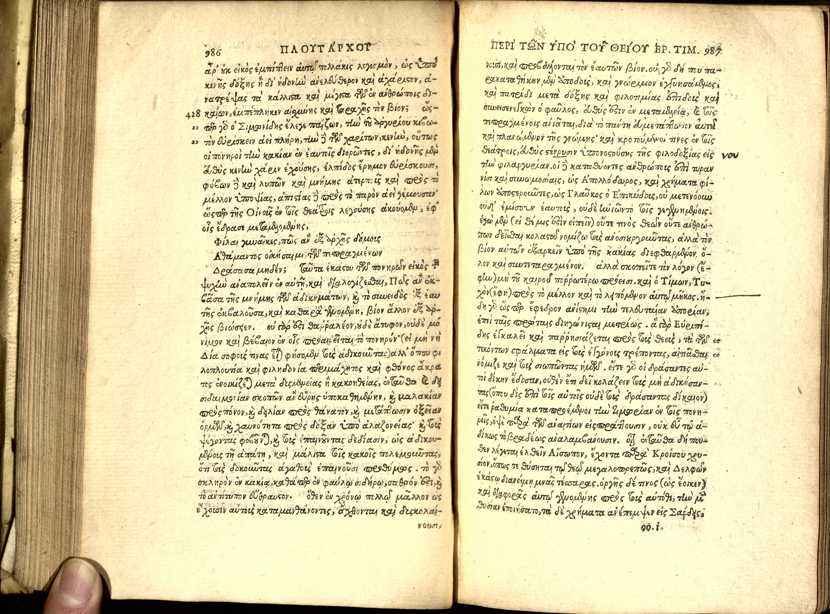 986 ΠΛΟΥΤΑΡΧΟΥ
ἆρ' οὐκ εἰκὸς ἐμπίπτειν αὐτῷ πολλάκις λογισμὸν, ὡς ὑπὸ
κενῆς δόξης ἢ δι' ἡδονὴν ἀνελεύθερον καὶ ἀχάριστον, ἀ-
νατρέψας τὰ κάλλιστα καὶ μέγιστα τῶν ἐν ἀνθρώποις δι-
428 καίων, ἐμπέπληκεν αἰσχύνης καὶ ταραχῆς τὸν βίον; ὥσ-
περ γὰρ ὁ Σιμωνίδης ἔλεγε παίζων, τὴν τοῦ ἀργυρίου κιβω-
τὸν εὑρίσκειν ἀεὶ πλήρη, τὴν δὲ τῶν χαρίτων, κενήν, οὕτως
οἱ πονηροὶ τὴν κακίαν ἐν ἑαυτοῖς διορῶντες, δι' ἡδονῆς μὲν
εὐθὺς κενὴν χάριν ἐχούσης, ἐλπίδος ἔρημον εὑρίσκουσι,
φόβων δὲ καὶ λυπῶν καὶ μνήμης ἀτερποῦς καὶ πρὸς τὸ
μέλλον ὑποψίας, ἀπιστίας δὲ πρὸς τὸ παρὸν ἀεὶ γέμουσαν·
ὥσπερ τῆς Ἰνοῦς ἐν τοῖς θεάτροις λεγούσης ἀκούομεν, ἐφ'
οἷς ἔδρασε μεταμελομένης,
Φίλαι γυναῖκες, πῶς ἂν ἐξ ἀρχῆς δόμοις
Ἀθάμαντος οἰκήσαιμι τῶν πεπραγμένων
Δράσασα μηδέν; ταῦτα ἑκάστου τῶν πονηρῶν εἰκὸς τ
ψυχὴν ἀναπολεῖν ἐν αὑτῇ, καὶ διαλογίζεσθαι, Πῶς ἂν ἐκ-
βᾶσα τῆς μνήμης τῶν ἀδικημάτων, καὶ τὸ συνειδὸς ἐξ ἑαυ-
τῆς ἐκβαλοῦσα, καὶ καθαρὰ γενομένη, βίον ἄλλον ἐξ ἀρ-
χῆς βιώσειεν. οὐ γάρ ἐστι θαρραλέον, οὐδὲ ἄτυφον, οὐδὲ μό-
νιμον καὶ βέβαιον ἐν οἷς προαιρεῖται τὸ πονηρὸν (εἰ μὴ νὴ
Δία σοφούς τινας εἶναι φήσομεν τοὺς ἀδικοῦντας) ἀλλ' ὅπου φι-
λοπλουτία καὶ φιληδονία περιμάχητος καὶ φθόνος ἄκρα-
τος ἐνοικίζεται μετὰ δυσμενείας ἢ κακοηθείας, ἐνταῦθα καὶ δει-
σιδαιμονίαν σκοπῶν ἀνευρήσεις ὑποκαθημένην, καὶ μαλακίαν
πρὸς πόνον, καὶ δειλίαν πρὸς θάνατον, καὶ μετάπτωσιν ὀξεῖαν
ὁρμῶν, καὶ χαυνότητα πρὸς δόξαν ὑπὸ ἀλαζονείας· καὶ τοὺς
ψέγοντας φοβοῦνται, καὶ τοὺς ἐπαινοῦντας δεδίασιν, ὡς ἀδικου-
μένους τῇ ἀπάτῃ, καὶ μάλιστα τοῖς κακοῖς πολεμοῦντας,
ὅτι τοὺς δοκοῦντας ἀγαθοὺς ἐπαινοῦσι προθύμως. τὸ γὰρ
σκληρὸν ἐν κακίᾳ, καθάπερ ἐν φαύλῳ σιδήρῳ, σαθρόν ἐστι, καὶ
τὸ ἀντίτυπον εὔθραυστον. ὅθεν ἐν χρόνῳ πολλῷ μᾶλλον ὡς
ἔχουσιν αὑτοὺς καταμανθάνοντες, ἄχθονται καὶ δυσκολαί-
νουσι,
ΠΕΡΙ ΤΩΝ ΥΠΟ ΤΟΥ ΘΕΙΟΥ ΒΡ. ΤΙΜ. 987
νουσι, καὶ προβάλλονται τὸν ἑαυτῶν βίον. οὐ γὰρ δή που πα-
ρακαταθήκην μὲν ἀποδοὺς, καὶ γνώριμον ἐγγυησάμενος,
καὶ πατρίδι μετὰ δόξης καὶ φιλοτιμίας ἐπιδοὺς καὶ
συνεισενεγκὼν ὁ φαῦλος, εὐθύς ἐστιν ἐν μεταμελείᾳ, καὶ τοῖς
πεπραγμένοις ἀνιᾶται, διὰ τὸ πάντῃ εὐμετάπτωτον αὐτοῦ
καὶ πλανώμενον τῆς γνώμης· καὶ κροτούμενοί τινες ἐν τοῖς
θεάτροις, εὐθὺς στένουσιν ὑπονοστούσης τῆς φιλοδοξίας εἰς
νου
τὴν φιλαργυρίαν. οἱ δὲ καταθύοντες ἀνθρώπους ἐπὶ τυραν-
νίσι καὶ συνωμοσίαις, ὡς Ἀπολλόδωρος, καὶ χρήματα φί-
λων ἀποστεροῦντες, ὡς Γλαῦκος ὁ Ἐπικύδους, οὐ μετενόουν
οὐδὲ ἐμίσουν ἑαυτοὺς, οὐδὲ ἠνιῶντο τοῖς γεγενημένοις.
ἐγὼ μὲν (εἰ θέμις ἐστὶν εἰπεῖν) οὔτε τινὸς θεῶν οὔτε ἀνθρώ-
πων δεῖσθαι κολαστοῦ νομίζω τοὺς ἀνοσιουργοῦντας, ἀλλὰ τὸν
βίον αὐτῶν ἐξαρκεῖν ὑπὸ τῆς κακίας διεφθαρμένον ὅ-
λον καὶ συντεταραγμένον. ἀλλὰ σκοπεῖτε τὸν λόγον (ἔ-
φην) μὴ τοῦ καιροῦ πορρωτέρω πρόεισι. καὶ ὁ Τίμων, Τυ-
χὸν (ἔφη) πρὸς τὸ μέλλον καὶ τὸ λειπόμενον αὐτῷ μῆκος. ἤ-
δη γὰρ ὥσπερ ἔφεδρον ἀνίστημι τὴν τελευταίαν ἀπορίαν,
ἐπεὶ ταῖς πρώταις διηγώνισται μετρίως. ἃ γὰρ Εὐριπί-
δης ἐγκαλεῖ καὶ παρρησιάζεται πρὸς τοὺς θεοὺς, τὰ τῶν
τεκόντων σφάλματα εἰς τοὺς ἐγγόνους τρέποντας, αἰτιᾶσθαι
νόμιζε καὶ τοὺς σιωπῶντας ἡμῶν. εἴτε γὰρ οἱ δράσαντες αὐ-
τοὶ δίκην ἔδοσαν, οὐθὲν ἔτι δεῖ κολάζειν τοὺς μὴ ἀδικήσαν-
τας (ὅπου δὶς ἐπὶ τοῖς αὐτοῖς οὐδὲ τοὺς δράσαντας δίκαιον)
εἴτε ῥᾳθυμίᾳ καταπροέμενοι τὴν τιμωρίαν ἐν τοῖς πονη-
ροῖς, ὀψὲ παρὰ τῶν ἀναιτίων εἰσπράττουσιν, οὐκ εὖ τῷ ἀ-
δίκως τὸ βραδέως ἀναλαμβάνουσιν. οἷον ἐνταῦθα δήπου-
θεν λέγεται ἐλθεῖν Αἴσωπον, ἔχοντα παρὰ Κροίσου χρυ-
σίον, ὅπως τε θύσῃ τῷ θεῷ μεγαλοπρεπῶς, καὶ Δελφῶν
ἑκάστῳ διανείμῃ μνᾶς τέσσαρας. ὀργῆς δέ τινος (ὡς ἔοικεν)
καὶ διαφορᾶς αὐτῷ γενομένης πρὸς τοὺς αὐτόθι, τὴν μὲν
θυσίαν ἐποιήσατο, τὰ δὲ χρήματα ἀνέπεμψεν εἰς Σάρδεις,
qq.i.